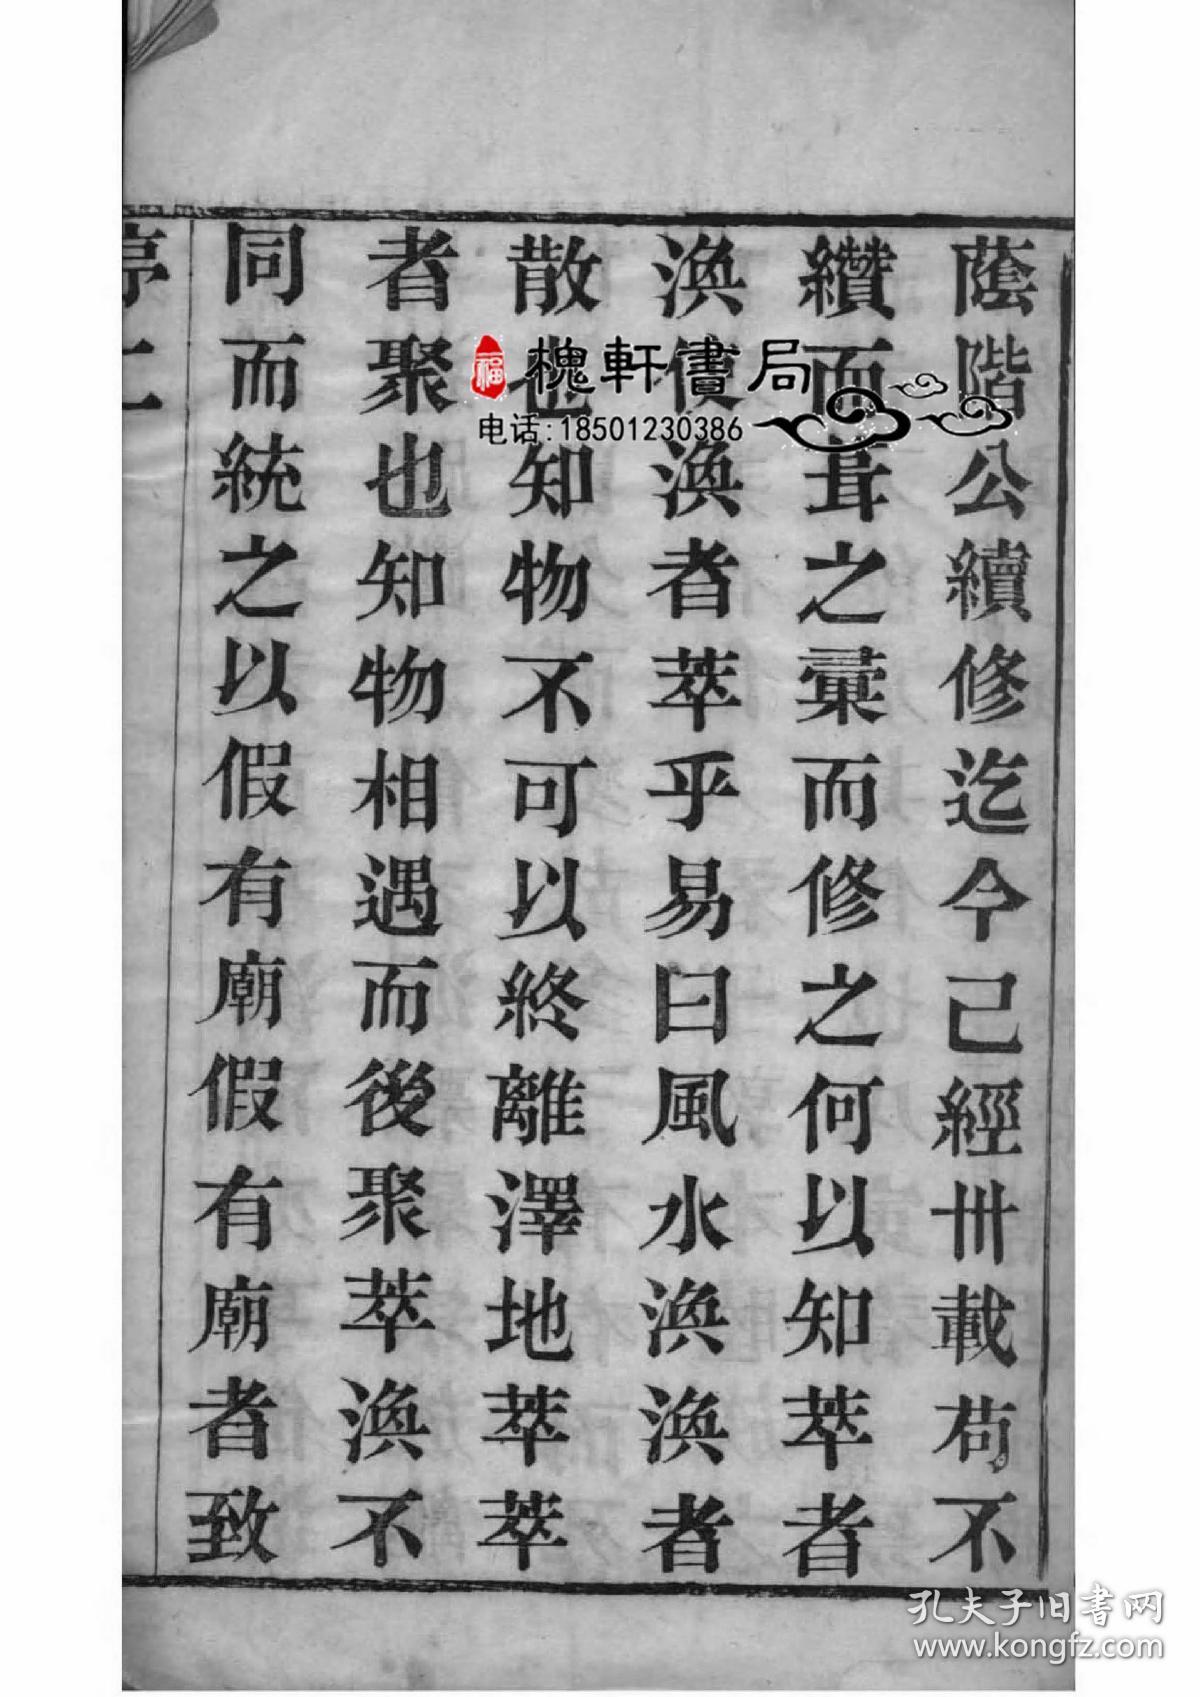 蔭階公續修迄今己經卅載苟不
纘而葺之彙而修之何以知萃者
渙使渙者萃乎易曰風水渙渙者
散也知物不可以終離澤地萃萃
者聚也知物相遇而後聚萃渙不
同而統之以假有廟假有廟者致
槐軒書局
福
电话:18501230386
孔夫子旧书网
www.kongfz.com